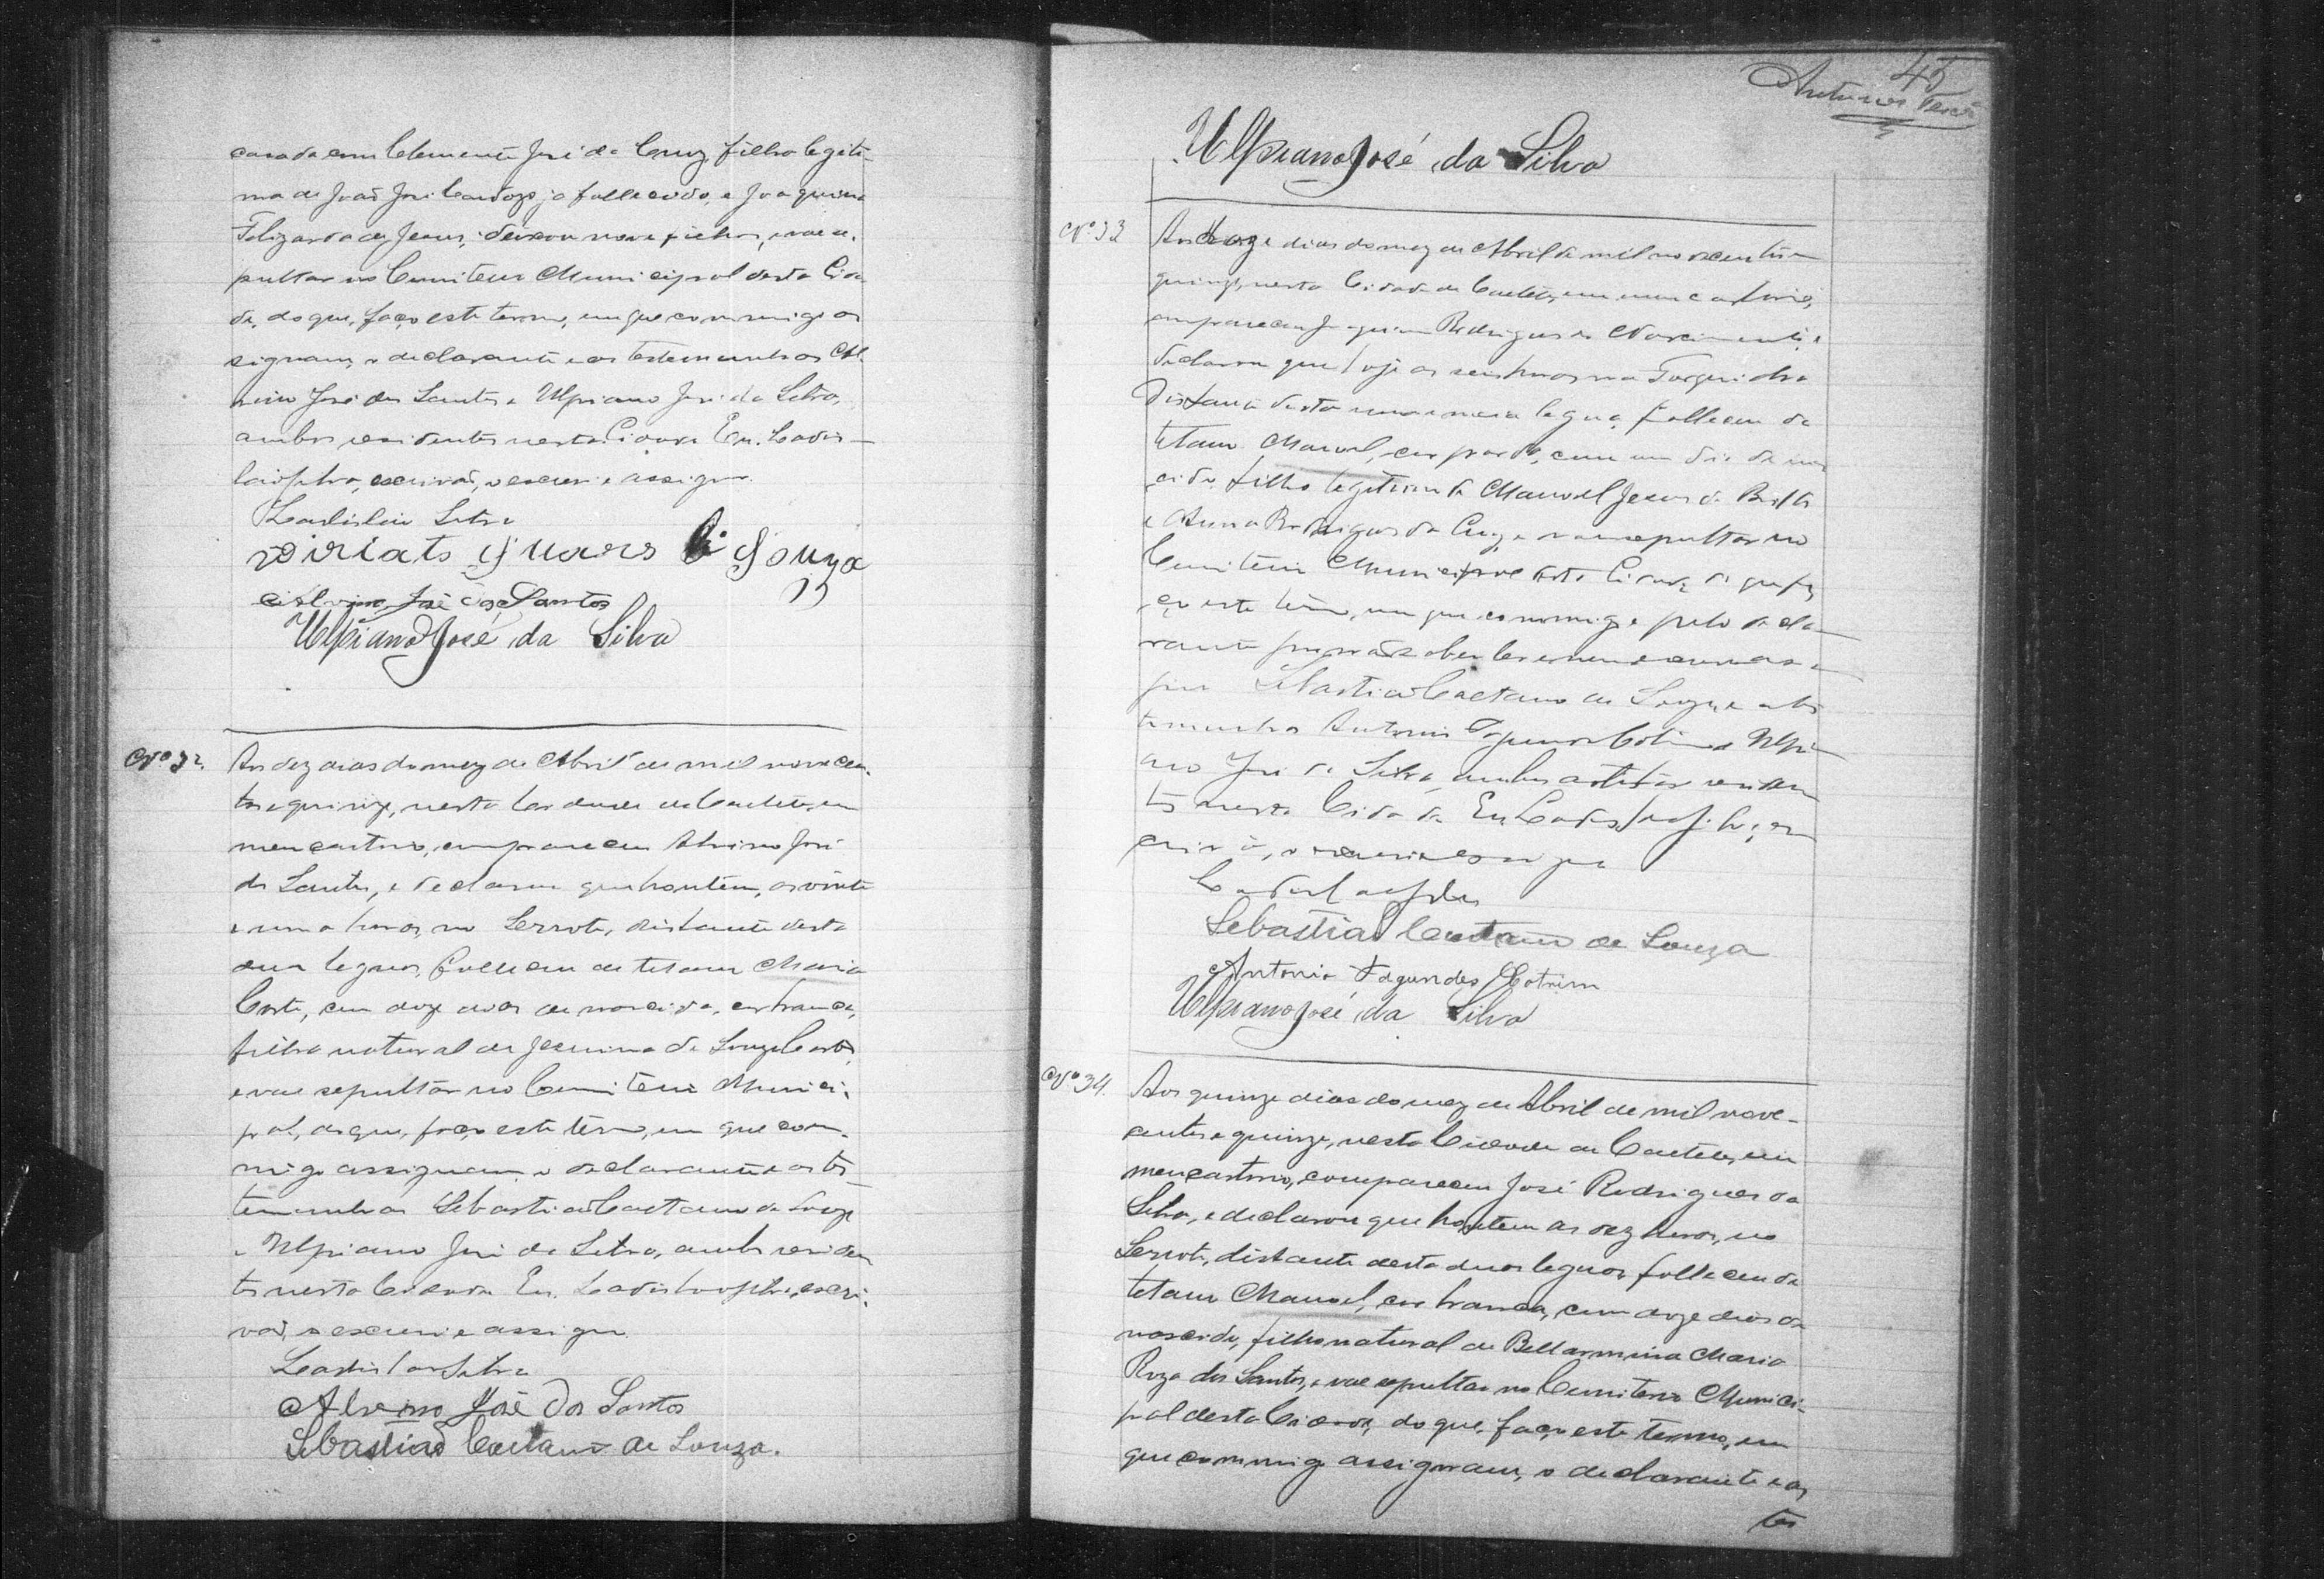 casada com Clemente José da Cruz, filha legiti-
ma de João José Cardozo já fallecido, e Joaquina
Felizarda de Jesus, deixou nove filhos, vae se
pultar no Cemiterio Municipal desta Cida
de, do que, faço este termo, em que commigo as
signam, o declarante e as testemunhas Al
vino José dos Santos e Ulpiano José da Silva,
ambos residentes nesta Cidade Eu. Ladis-
lao Silva, escrivaõ, o escrevi e assigno.
Ladislau Silva
Viriato Soares de Souza
Alvino José dos Santos
Ulpiano José da Silva
Nº 32.
Aos dez dias do mez de Abril de mil novecen-
tos e quinze, nesta Cidade de Caeteté, em
meu cartorio, compareceu Alvino José
dos Santos, e declarou que hontem, as vinte
e uma horas, no Serrote, distante desta
duas legoas, falleceu de tetano Maria
Corte, com doze dias de nascida, cor branca,
filha natural de Jesuina de Souza
e vae sepultar no Cemiterio Munici-
pal, do que, faço este termo, em que com-
migo assignam o declarante e as tes-
temunhas Sebastiaõ Caetano de Souza
e Ulpiano José da Silva, ambos residen
tes nesta Cidade Eu. Ladislao Silva, escri-
vaõ, o escrevi e assigno.
Ladislao Silva
Alvino José dos Santos
Sebastiaõ Caetano de Souza.
45
Antunes
Ulpiano José da Silva
Nº 33
Aos doze dias do mez de Abril de mil novecentos e
quinze, nesta Cidade de Caeteté, em meu cartorio,
compareceu Joaquim Rodrigues do Nascimento, e
declarou que hoje as seis horas na
distante desta uma e meia legua, falleceu de
tetano Manoel, cor parda, com um dia de nas
cido, filho legitimo de Manoel Jesus de Britto
e Anna Rodrigues da Cruz, e vae sepultar no
Cemiterio Municipal desta Cidade, do que fa
ço este termo, em que commigo e pelo decla-
rante por não saber ler e nem escrever as-
signa Sebastiaõ Caetano de Souza, e as tes
temunhas Antonio Fagundes Cotrim e Ulpi-
ano José da Silva, ambos artistas residen
tes nesta Cidade Eu, Ladislao Silva, es
crivaõ, o escrevi e assigno
Ladislao Silva
Sebastiaõ Caetano de Souza
Antonio Fagundes Cotrim
Ulpiano José da Silva
Nº 34.
Aos quinze dias do mez de Abril de mil nove-
centos e quinze, nesta Cidade de Caeteté, em
meu cartorio, compareceu José Rodrigues da
Silva, e declarou que hontem as dez horas, no
Serrote, distante desta duas legoas, falleceu de
tetano Manoel, cor branca, com doze dias de
nascido, filho natural de Bellarmina Maria
Roza dos Santos, e vae sepultar no Cemiterio Munici-
pal desta Cidade, do que, faço este termo, em
que commigo assignam, o declarante e as
tes